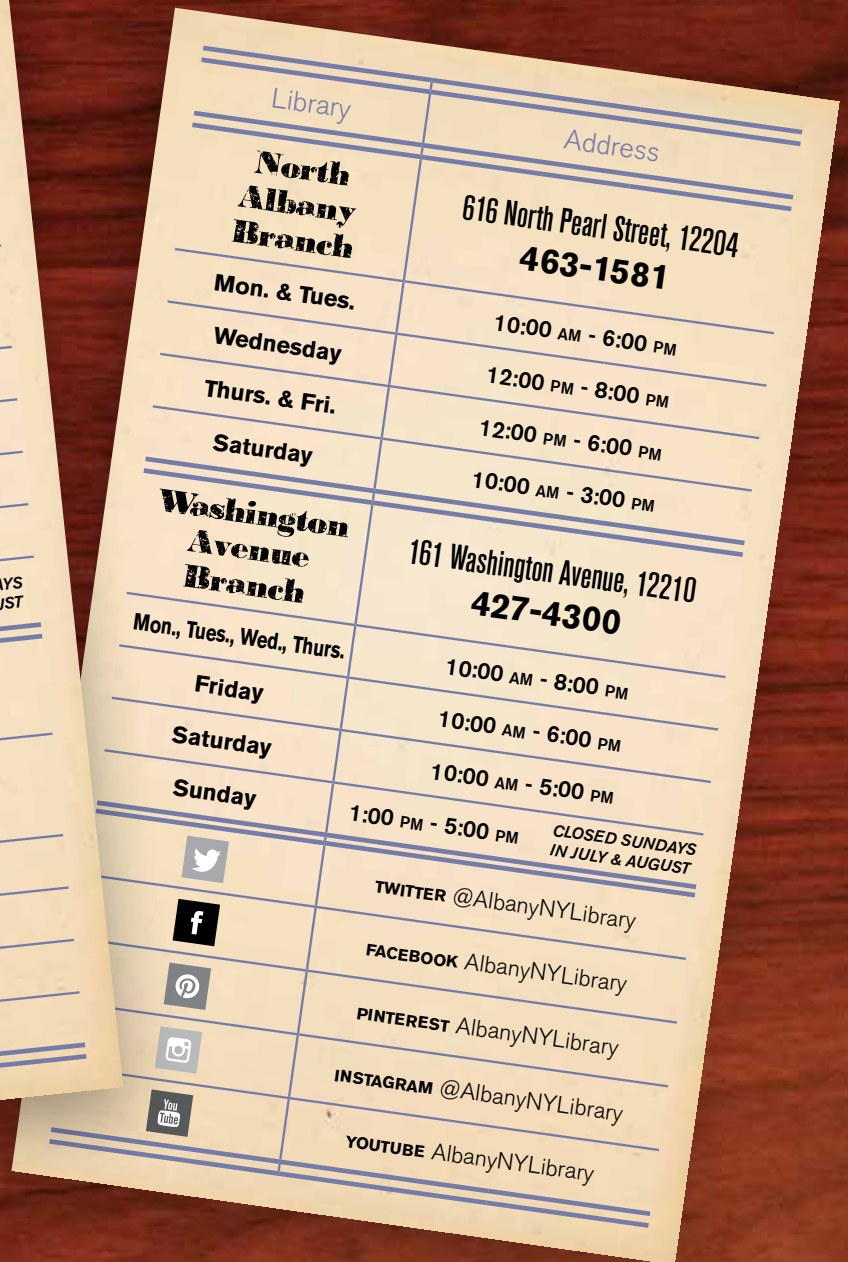 Library Address
North
Albany
Branch
616 North Pearl Street, 12204
463-1581
Mon. & Tues. 10:00 AM - 6:00 PM
Wednesday 12:00 PM - 8:00 PM
Thurs. & Fri. 12:00 PM - 6:00 PM
Saturday 10:00 AM - 3:00 PM
Washington
Avenue
Branch
161 Washington Avenue, 12210
427-4300
Mon., Tues., Wed., Thurs. 10:00 AM - 8:00 PM
Friday 10:00 AM - 6:00 PM
Saturday 10:00 AM - 5:00 PM
Sunday 1:00 PM - 5:00 PM
CLOSED SUNDAYS
IN JULY & AUGUST
TWITTER @AlbanyNYLibrary
FACEBOOK AlbanyNYLibrary
PINTEREST AlbanyNYLibrary
INSTAGRAM @AlbanyNYLibrary
You
Tube
YOUTUBE AlbanyNYLibrary